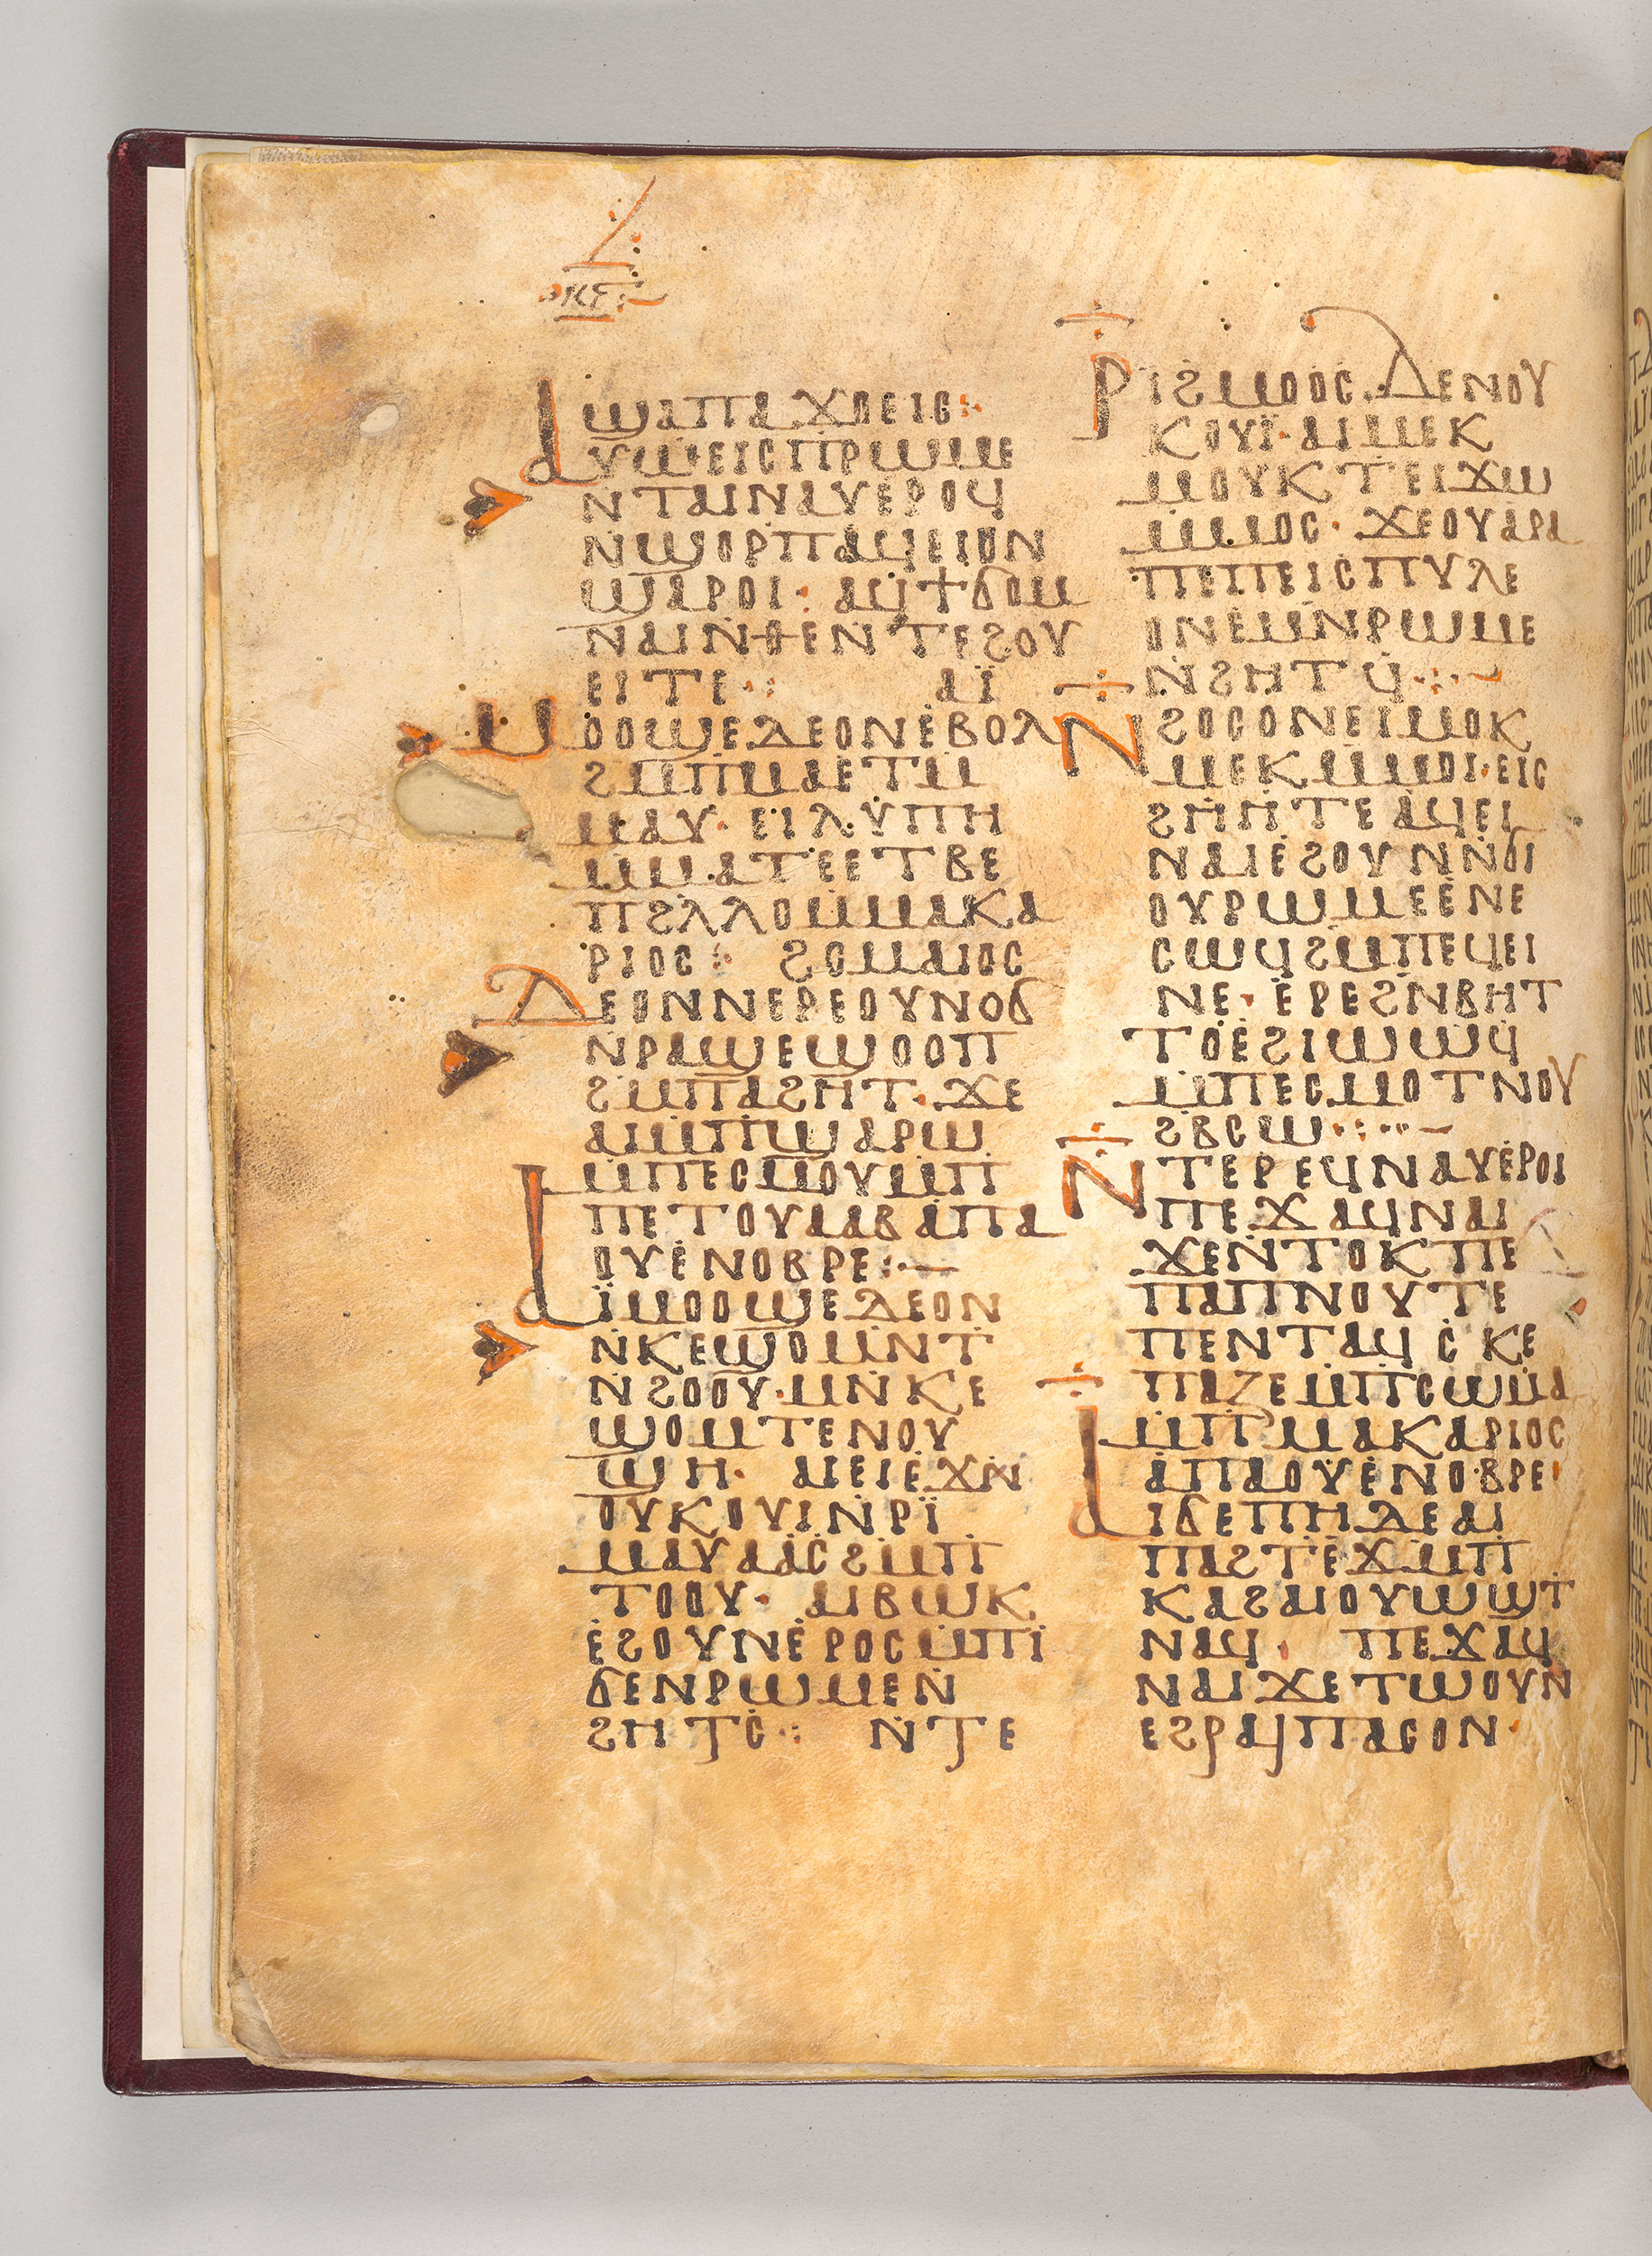 ϣⲁⲡⲁϫⲟⲉⲓⲥ⁖
ⲁⲩⲱⲉⲓⲥⲡⲣⲱⲙⲉ
ⲛⲧⲁⲓⲛⲁⲩⲉⲣⲟϥ
ⲛϣⲟⲣⲡⲁϥⲉⲓⲟⲛ
ϣⲁⲣⲟⲓ· ⲁϥϯϭⲟⲙ
ⲛⲁⲓⲛⲑⲉⲛⲧⲉϩⲟⲩ
ⲉⲓⲧⲉ⁖ ⲁⲓ̈
ⲙⲟⲟϣⲉⲇⲉⲟⲛⲉⲃⲟⲗ
ϩⲙⲡⲙⲁⲉⲧⲙ
ⲙⲁⲩ· ⲉⲓⲗⲩⲡⲏ
ⲙⲙⲁⲧⲉⲉⲧⲃⲉ
ⲡϩⲗⲗⲟⲙⲙⲁⲕⲁ
ⲣⲓⲟⲥ⁖ ϩⲟⲙⲁⲓⲟⲥ
ⲇⲉⲟⲛⲛⲉⲣⲉⲟⲩⲛⲟϭ
ⲛⲣⲁϣⲉϣⲟⲟⲡ
ϩⲙⲡⲁϩⲏⲧ· ϫⲉ
ⲁⲓⲙⲡϣⲁⲣⲱ
ⲙⲡⲉⲥⲙⲟⲩⲙⲡ
ⲡⲉⲧⲟⲩⲁⲁⲃⲁⲡⲁ
ⲟⲩⲉⲛⲟⲃⲣⲉ⁖—
ⲁⲓ̈ⲙⲟⲟϣⲉⲇⲉⲟⲛ
ⲛⲕⲉϣⲟⲙⲛⲧ
ⲛϩⲟⲟⲩ·ⲙⲛⲕⲉ
ϣⲟⲙⲧⲉⲛⲟⲩ
ϣⲏ· ⲁⲓⲉⲓⲉϫⲛ
ⲟⲩⲕⲟⲩⲓⲛⲣⲓ̈
ⲙⲁⲩⲁⲁⲥϩⲙⲡ
ⲧⲟⲟⲩ· ⲁⲓⲃⲱⲕ
ⲉϩⲟⲩⲛⲉⲣⲟⲥⲙⲡⲓ
ϭⲉⲛⲣⲱⲙⲉⲛ
ϩⲏⲧⲥ⁖ ⲛⲧⲉ
ⲣⲓϩⲙⲟⲟⲥ·ⲇⲉⲛⲟⲩ
ⲕⲟⲩⲓ̈·ⲁⲓⲙⲉⲕ
ⲙⲟⲩⲕⲧⲉⲓϫⲱ
ⲙⲙⲟⲥ· ϫⲉⲟⲩⲁⲣⲁ
ⲡⲉⲡⲉⲓⲥⲡⲩⲗⲉ
ⲟⲛⲉⲙⲛⲣⲱⲙⲉ
ⲛϩⲏⲧϥ⁖~
ⲛϩⲟⲥⲟⲛⲉⲓⲙⲟⲕ
ⲙⲉⲕⲙⲙⲟⲓ·ⲉⲓⲥ
ϩⲏⲏⲧⲉⲁϥⲉⲓ
ⲛⲁⲓⲉϩⲟⲩⲛⲛϭⲓ
ⲟⲩⲣⲱⲙⲉⲉⲛⲉ
ⲥⲱϥϩⲙⲡⲉϥⲉⲓ
ⲛⲉ· ⲉⲣⲉϩⲛⲃⲏⲧ
ⲧⲟⲉϩⲓⲱⲱϥ
ⲙⲡⲉⲥⲙⲟⲧⲛⲟⲩ
ϩⲃⲥⲱ⁖··—
ⲛⲧⲉⲣⲉϥⲛⲁⲩⲉⲣⲟⲓ
ⲡⲉϫⲁϥⲛⲁⲓ
ϫⲉⲛⲧⲟⲕⲡⲉ
ⲡⲁⲡⲛⲟⲩⲧⲉ
ⲡⲉⲛⲧⲁϥⲥⲕⲉ
ⲡⲁⲍⲉⲙⲡⲥⲱⲙⲁ
ⲙⲡⲙⲁⲕⲁⲣⲓⲟⲥ
ⲁⲡⲁⲟⲩⲉⲛⲟⲃⲣⲉ·
ⲁⲓϭⲉⲡⲏⲇⲉⲁⲓ
ⲡⲁϩⲧⲉϫⲙⲡ
ⲕⲁϩⲁⲓⲟⲩⲱϣⲧ
ⲛⲁϥ· ⲡⲉϫⲁϥ
ⲛⲁⲓϫⲉⲧⲱⲟⲩⲛ
ⲉϩⲣⲁⲓⲡⲁⲥⲟⲛ·